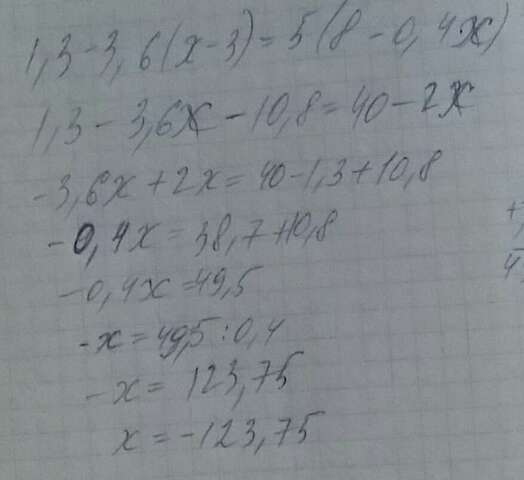 1,3-3,6(x-3)=5(8-0,4x)
1,3-3,6x-10,8=40-2x
-3,6x+2x=40-1,3+10,8
-0,4x=38,7+10,8
-0,4x=49,5
-x=49,5:0,4
-x=123,75
x=-123,75
+
4